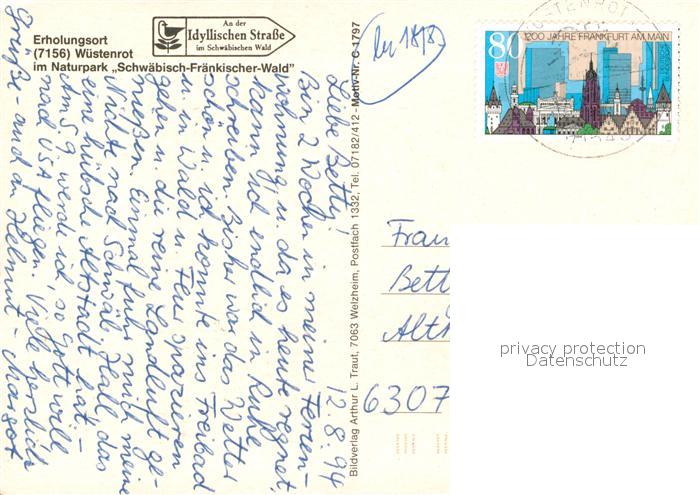 Erholungsort
(7156) Wüstenrot
im Naturpark „Schwäbisch-Fränkischer-Wald"
An der
Idyllischen Straße
im Schwäbischen Wald
12.8.94
Liebe Betty!
Bin 2 Wochen in meiner Ferien-
wohnung u. da es heute regnet,
kann ich endlich in Ruhe
schreiben. Bisher war das Wetter
schön u. ich konnte ins Freibad
u. i. Wald u. Feld spazieren
gehen u. die reine Landluft ge-
nießen. Einmal fuhr mich meine
Nichte nach Schwäb. Hall, das
eine hübsche Altstadt hat. –
Am 5.9. werde ich, so Gott will
nach USA fliegen. Viele herzliche
Grüße – auch an Helmut – Margot
Bildverlag Arthur L. Traut, 7063 Welzheim, Postfach 1332, Tel. 07182/412 - Motiv-Nr. C 1797
80
1200 JAHRE FRANKFURT AM MAIN
WÜSTENROT
Frau
Bett
Alth
6307
privacy protection
Datenschutz